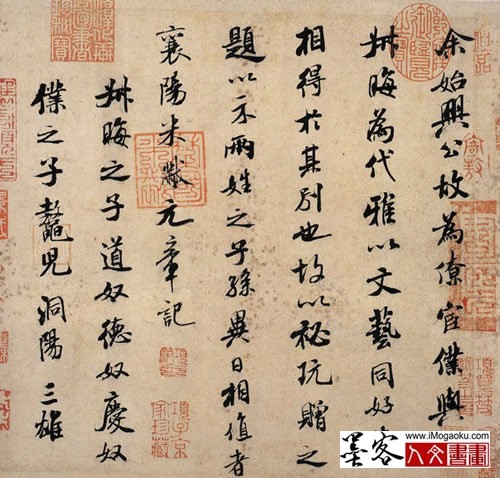 余始興公故為僚宦僕與
叔晦為代雅以文藝同好
相得於其別也故以祕玩贈之
題以示兩姓之子孫異日相值者
襄陽米黻元章記
叔晦之子道奴德奴慶奴
僕之子鼇兒洞陽三雄
項子京家珍藏
墨客
www.iMogaoku.com
人文書畫